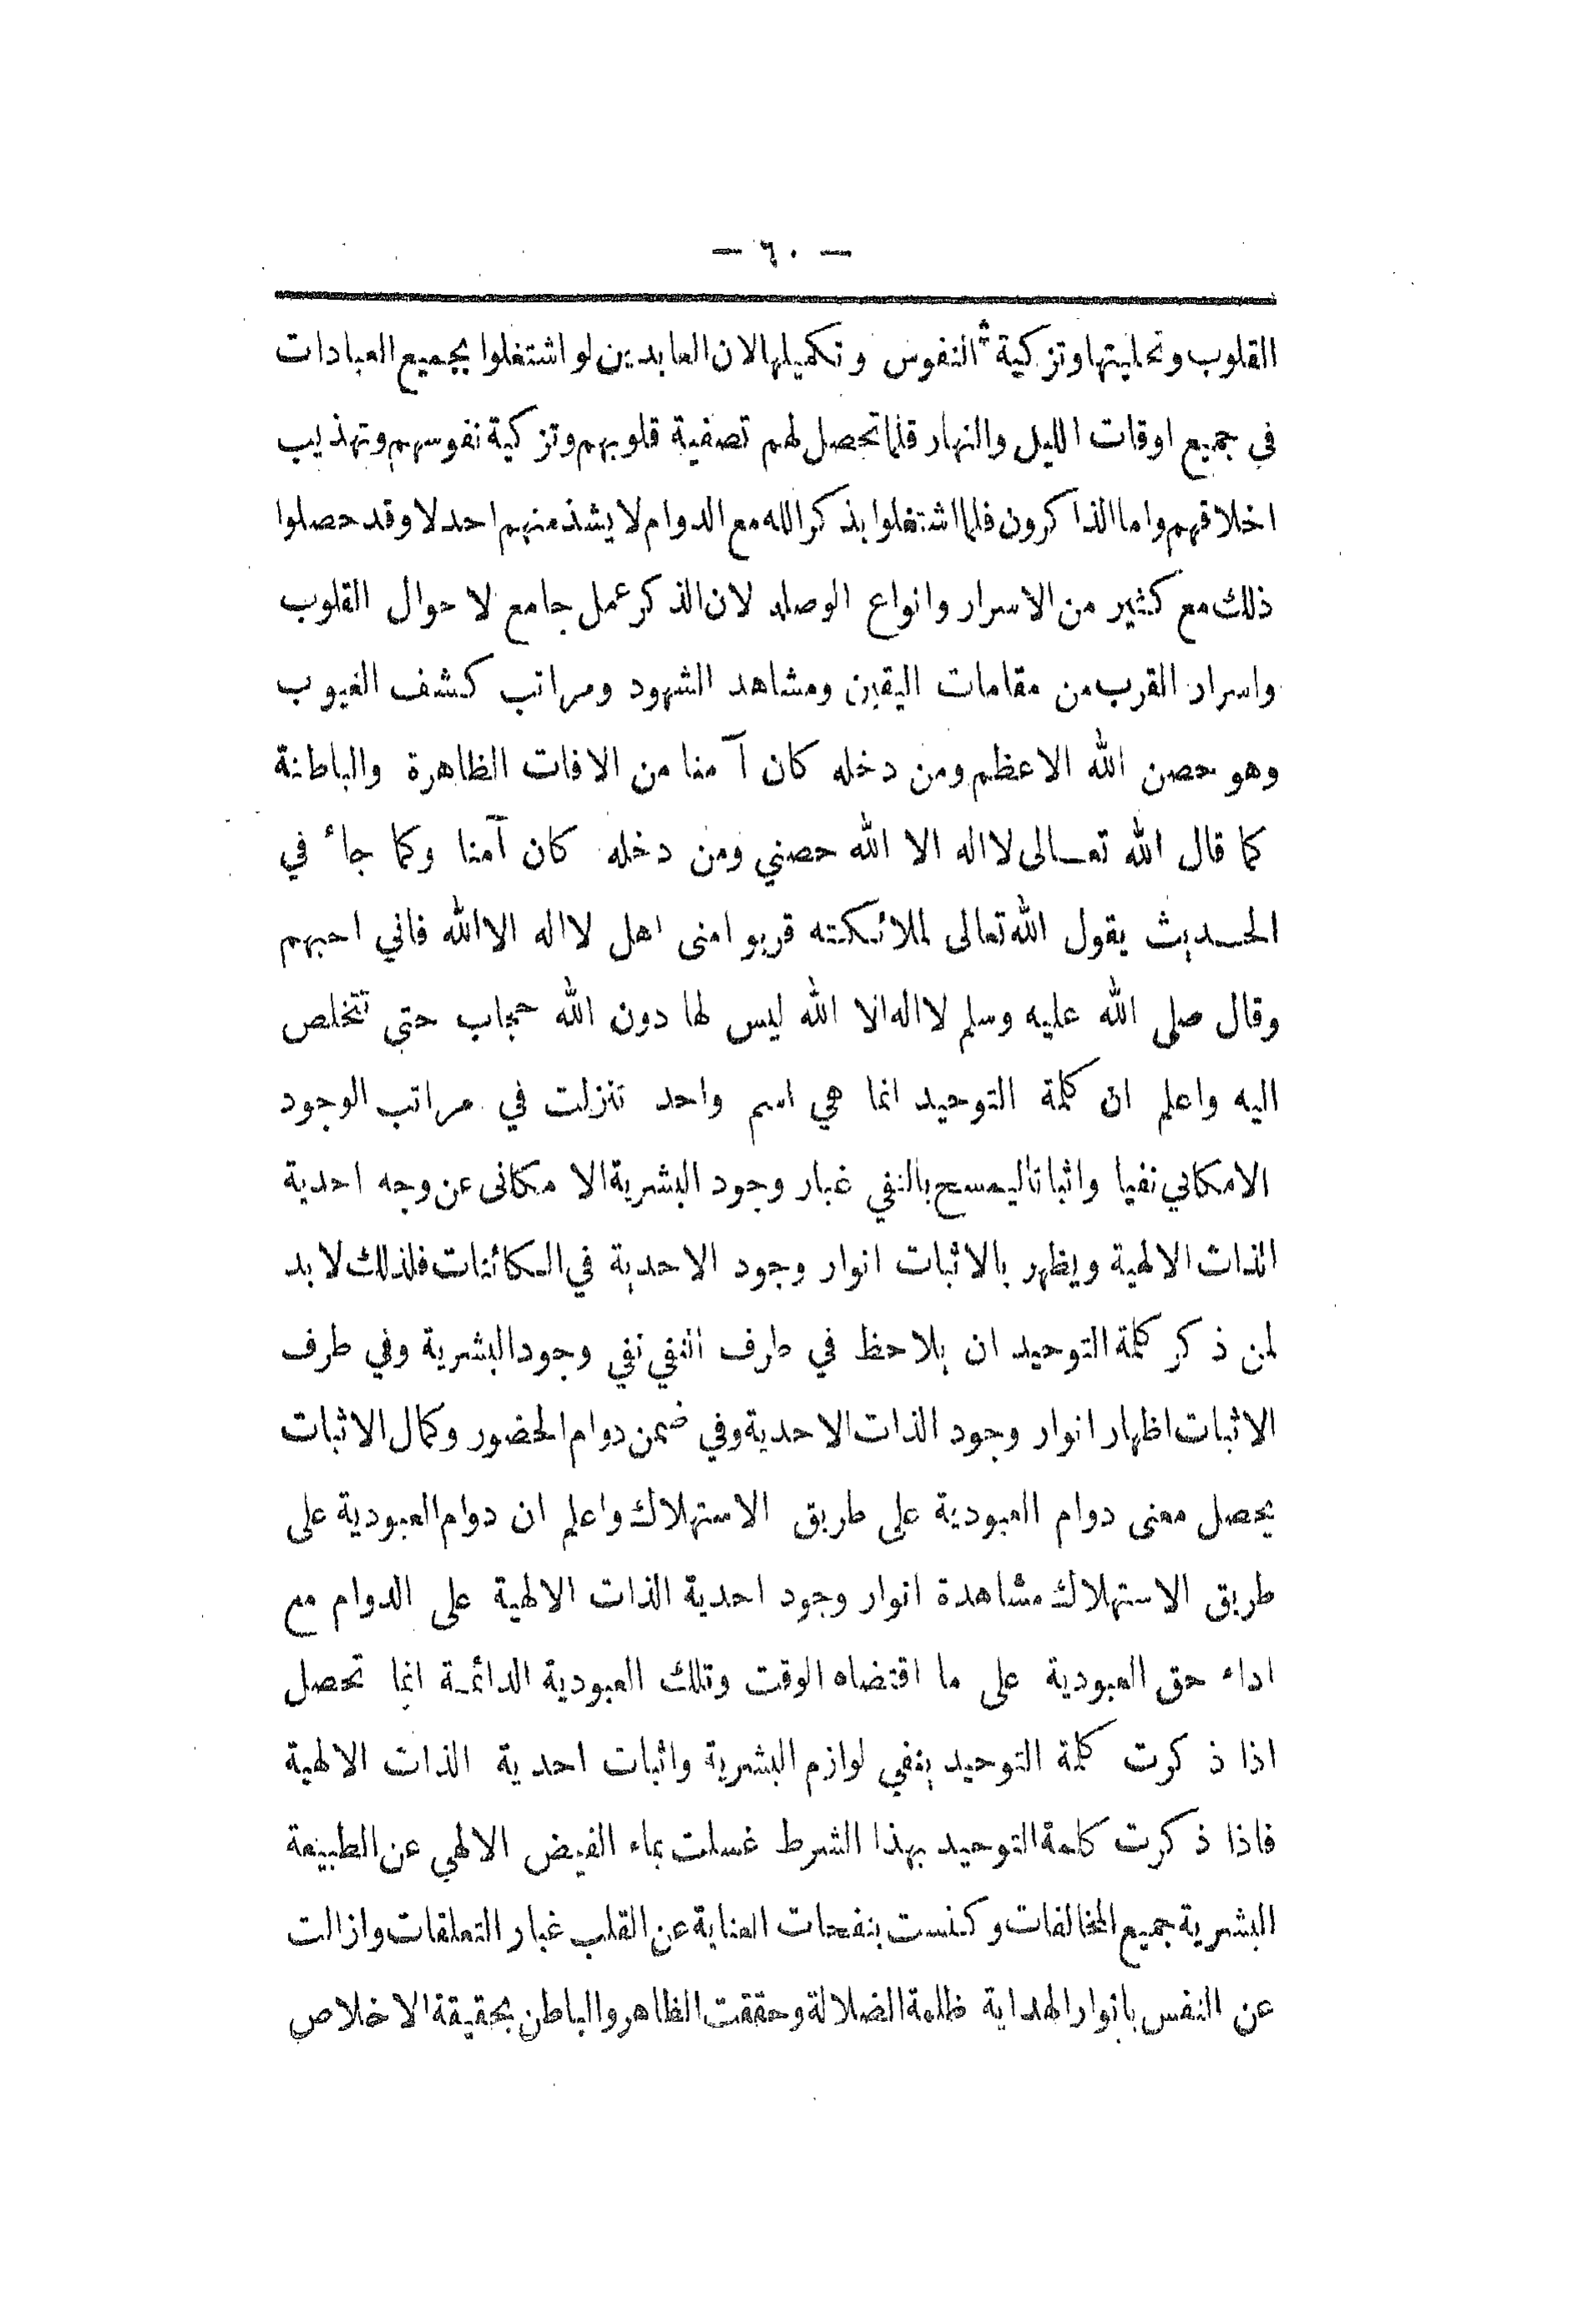 — ٦٠ —
القلوب وتحليتها وتزكية النفوس وتكميلها لان العابدين لو اشتغلوا بجميع العبادات
في جميع اوقات الليل والنهار قلما تحصل لهم تصفية قلوبهم وتزكية نفوسهم وتهذيب
اخلاقهم واما الذاكرون فلما اشتغلوا بذكر الله مع الدوام لا يشذ منهم احد لا وقد حصلوا
ذلك مع كثير من الاسرار وانواع الوصله لان الذكر عمل جامع لاحوال القلوب
واسرار القرب من مقامات اليقين ومشاهد الشهود ومراتب كشف الغيوب
وهو حصن الله الاعظم ومن دخله كان آمنا من الافات الظاهرة والباطنة
كما قال الله تعالى لا اله الا الله حصني ومن دخله كان آمنا وكما جاء في
الحديث يقول الله تعالى لملائكته قربو امنى اهل لا اله الا الله فاني احبهم
وقال صلى الله عليه وسلم لا اله الا الله ليس لها دون الله حجاب حتى تتخلص
اليه واعلم ان كلمة التوحيد انما هي اسم واحد تنزلت في مراتب الوجود
الامكاني نفيا واثباتا ليمسح بالنفي غبار وجود البشرية الامكانى عن وجه احدية
الذات الالهية ويظهر بالاثبات انوار وجود الاحدية في الكائنات فلذلك لا بد
لمن ذكر كلمة التوحيد ان يلاحظ في طرف النفي نفي وجود البشرية وفي طرف
الاثبات اظهار انوار وجود الذات الاحدية وفي ضمن دوام الحضور وكمال الاثبات
يحصل معنى دوام العبودية على طريق الاستهلاك واعلم ان دوام العبودية على
طريق الاستهلاك مشاهدة انوار وجود احدية الذات الالهية على الدوام مع
اداء حق العبودية على ما اقتضاه الوقت وتلك العبودية الدائمة انما تحصل
اذا ذكرت كلمة التوحيد بنفي لوازم البشرية واثبات احدية الذات الالهية
فاذا ذكرت كلمة التوحيد بهذا الشرط غسلت بماء الفيض الالهي عن الطبيعة
البشرية جميع المخالفات وكنست بنفحات العناية عن القلب غبار التعلقات وازالت
عن النفس بانوار الهداية ظلمة الضلالة وحققت الظاهر والباطن بحقيقة الاخلاص